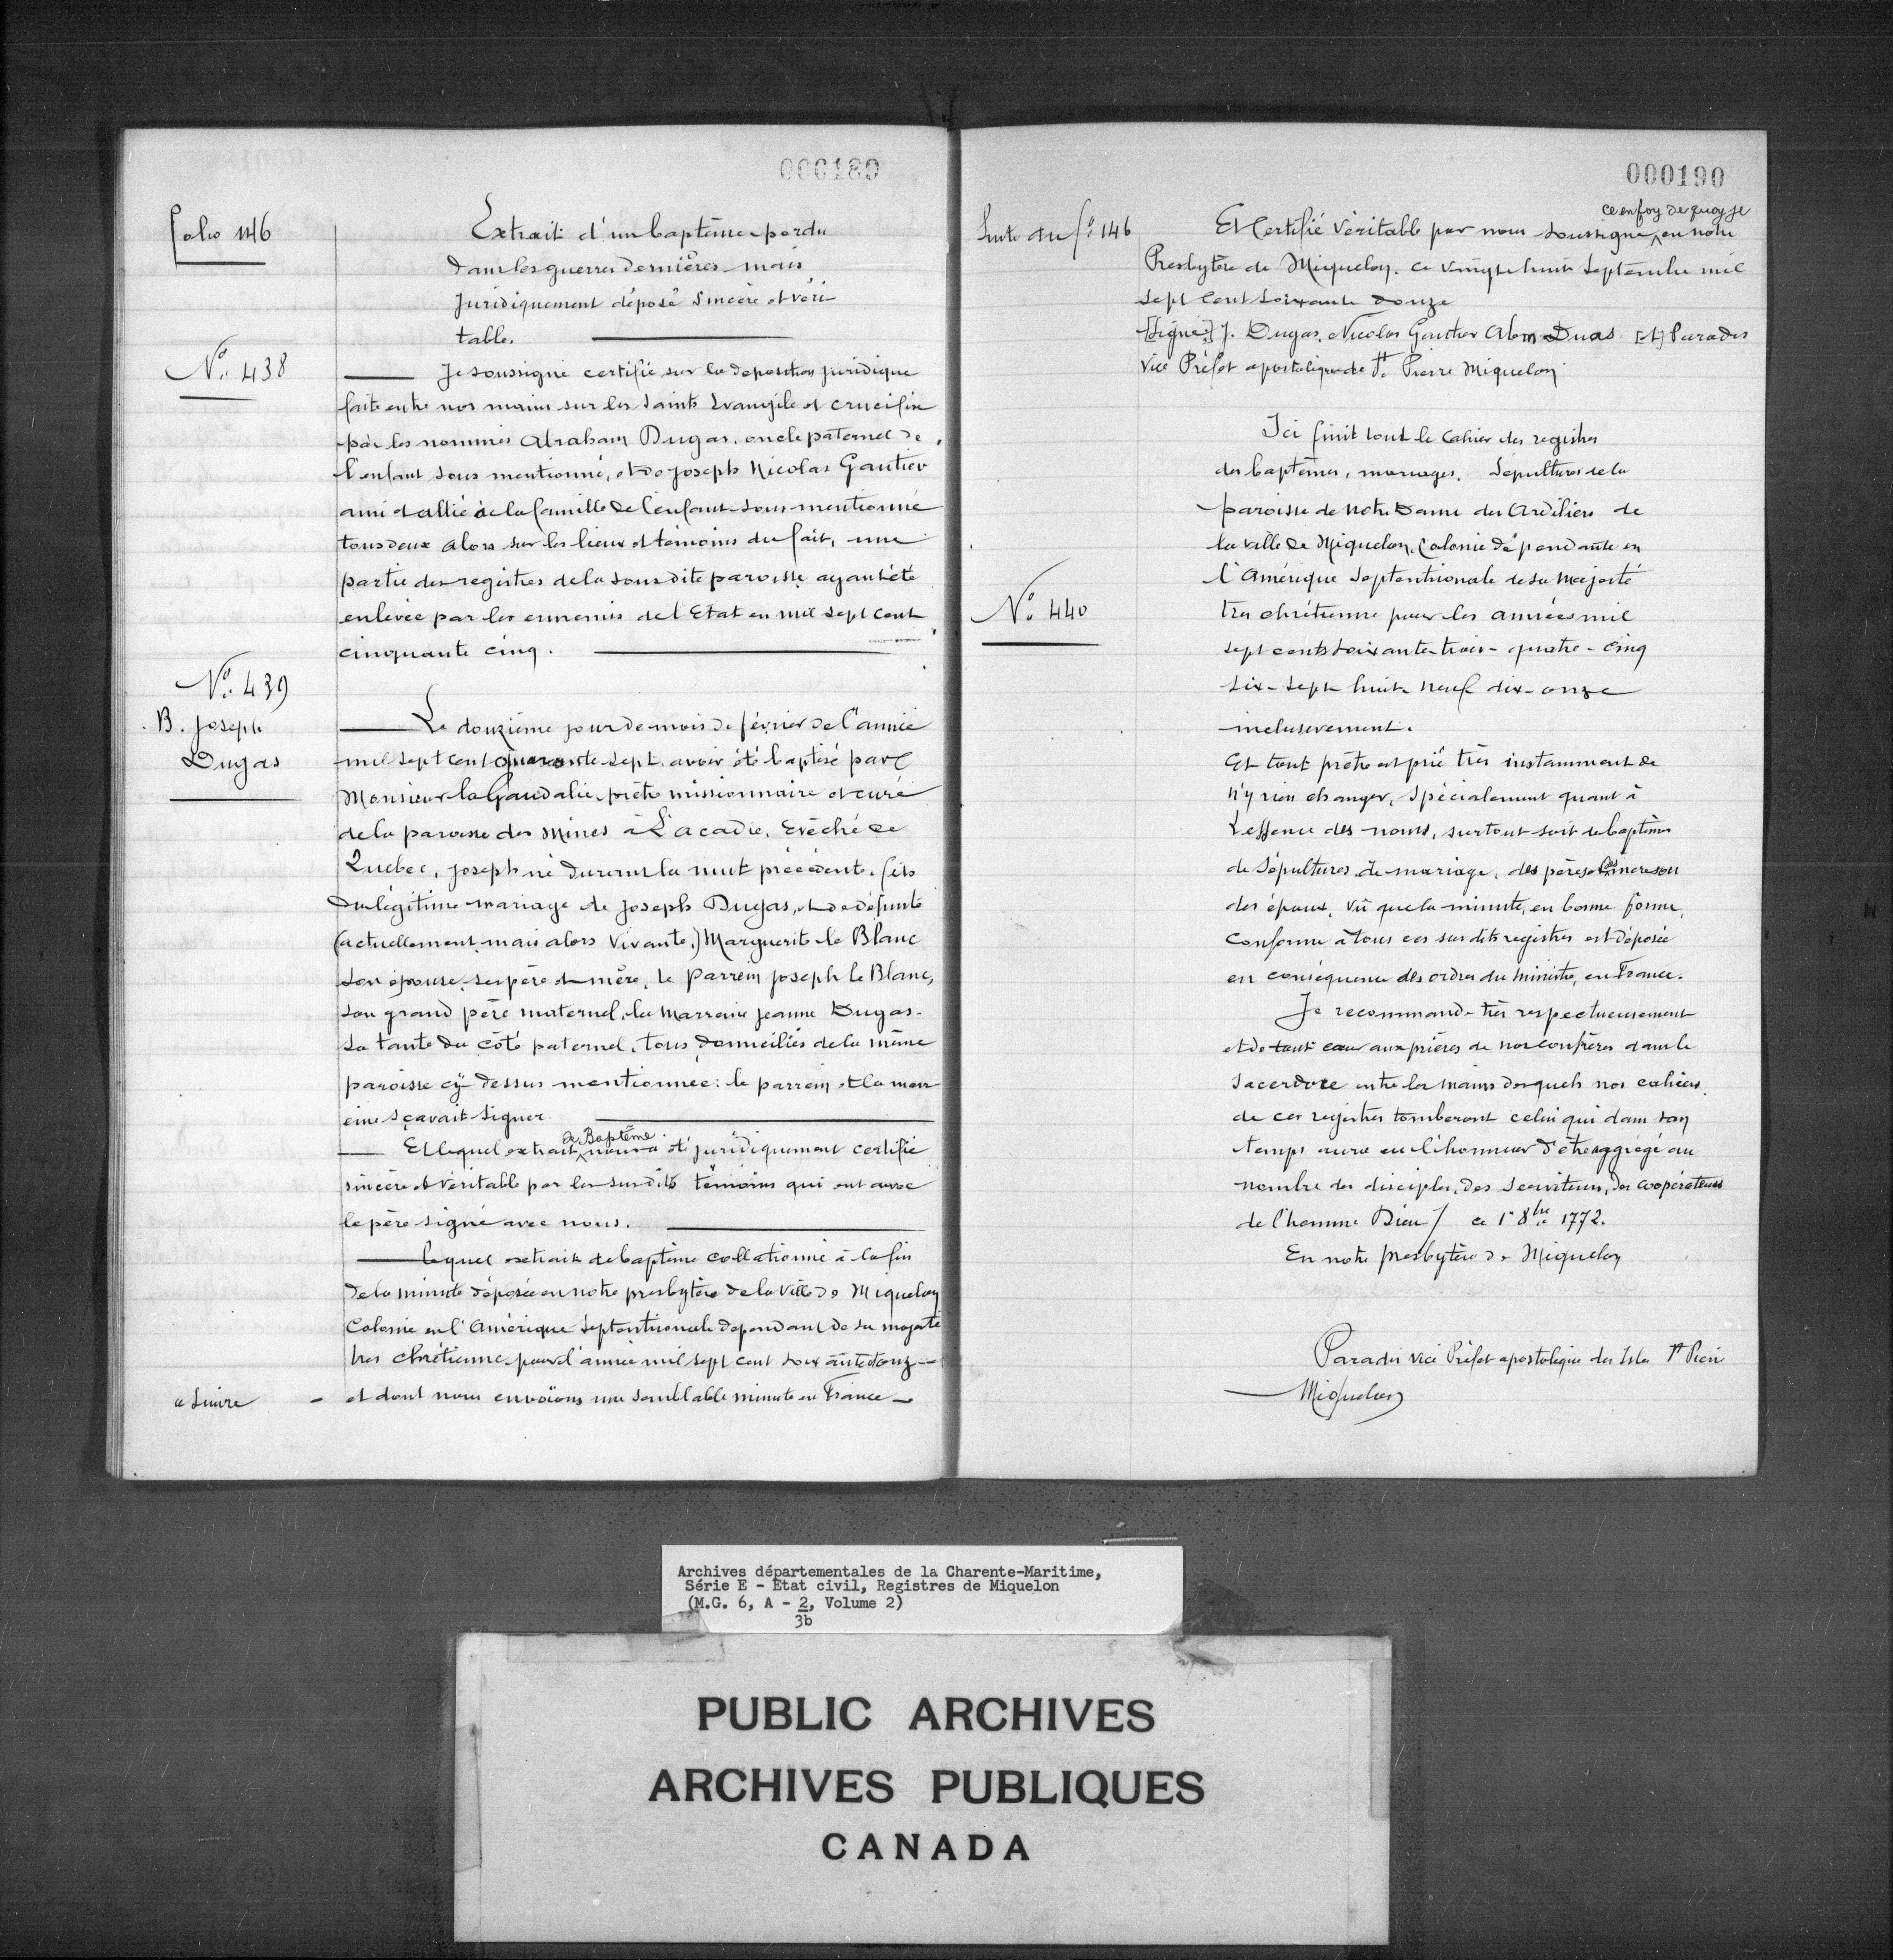 000189
Folio 146
Extrait d'un baptême perdu
dans les guerres dernières mais
juridiquement déposé sincère et véri-
table.
No. 438
Je soussigné certifié sur la deposition juridique
faite entre nos mains sur les Saints Evangile et crucifix
par les nommés Abraham Dugas, oncle paternel de
l'enfant sous mentionné, et de Joseph Nicolas Gautier
ami et allié de la famille de l'enfant sous mentionné
tous deux alors sur les lieux et témoins du fait, une
partie des registres de la sousdite paroisse ayant été
enlevée par les ennemis de l'Etat en mil sept cent
cinquante cinq.
No. 439
B. Joseph
Dugas
Le douzième jour de mois de février de l'année
mil sept cent quarante sept, avoir été baptisé par
Monsieur la Gaudalie, prêtre missionnaire et curé
de la paroisse des Mines à L'acadie, Evêché de
Quebec, Joseph né durant la nuit précédente, fils
du légitime mariage de Joseph Dugas, et de défunte
(actuellement, mais alors vivante,) Marguerite le Blanc
son épouse, ses père et mère, le parrein Joseph le Blanc,
son grand père maternel, la Marraine Jeanne Dugas.
sa tante du côté paternel, tous domiciliés de la même
paroisse cÿ dessus mentionnée: le parrein et la marr
eine sçavait signer
de Baptême
Et lequel extrait nous a été juridiquement certifié
sincère et véritable par les susdits témoins qui ont avec
le père signé avec nous.
lequel extrait de baptême collationné à la fin
de la minute déposée en notre presbytère de la Ville de Miquelon
Colonie en l'Amérique Septentrionale dependant de sa majesté
très chrétienne pour l'année mil sept cent soixante douze
et dont nous envoïons une semblable minute en France
a suivre
000190
Suite du fo. 146
ce en foy de quoy je
Et Certifié Véritable par nous soussigné en notre
Presbytère de Miquelon. ce vingt huit septembre mil
sept cent soixante douze
[Signé] J. Dugas, Nicolas Gautier Abm Duas [et] Paradis
Vice Préfet apostolique de St. Pierre Miquelon
No. 440
Ici finit tout le Cahier des registres
des baptêmes, mariages. Sépultures de la
paroisse de Notre Dame des Ardiliers de
la ville de Miquelon, Colonie dépendante en
l'Amérique Septentrionale de sa Majesté
très chrétienne pour les années mil
sept cents soixante-trois - quatre - cinq
six - sept - huit - neuf dix - onze
inclusivement.
Et tout prêtre est prié très instamment de
n'y rien changer, Spécialement quant à
L'essence des noms, surtout soit de baptêmes
de Sépultures, de mariage, des pères et des mères ou
des époux, vû que la minute, en bonne forme,
conforme à tous ces susdits registres est déposée
en conséquence des ordres du ministre, en France.
Je recommand- très respectueusement
et de tout cœur aux prières de nos confrères dans le
Sacerdoce entre les mains desquels nos cahiers
de ces registres tomberont celui qui dans son
temps aura eu l'honneur d'être aggrégé au
nombre des disciples, des Serviteurs, des coopérateurs
de l'homme Dieu / ce 1er 8bre 1772.
En notre presbytère de Miquelon
Paradis vice Préfet apostolique des Isles St Pierre
Miquelon
Archives départementales de la Charente-Maritime,
Série E - Etat civil, Registres de Miquelon
(M.G. 6, A - 2, Volume 2)
3b
PUBLIC ARCHIVES
ARCHIVES PUBLIQUES
CANADA